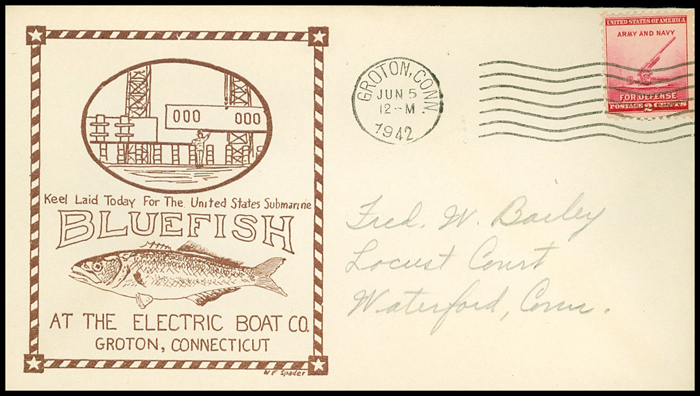 Keel Laid Today For The United States Submarine
BLUEFISH
AT THE ELECTRIC BOAT CO.
GROTON, CONNECTICUT
W F Spader
GROTON, CONN.
JUN 5
12-M
1942
UNITED STATES OF AMERICA
ARMY AND NAVY
FOR DEFENSE
POSTAGE 2 CENTS
Fred. W. Bailey
Locust Court
Waterford, Conn.